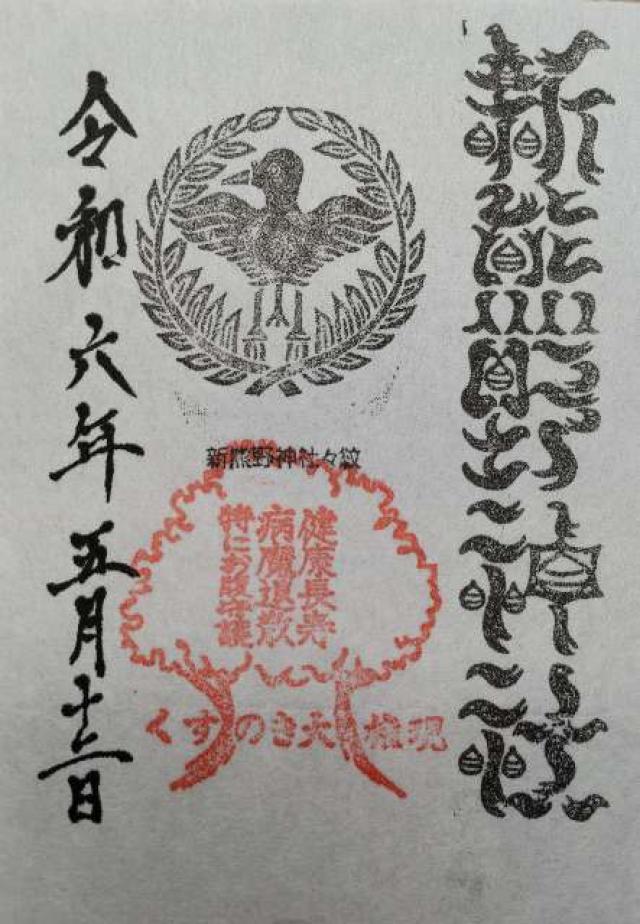 新熊野神社
新熊野神社々紋
健康長寿
病魔退散
特にお腹守護
くすのき大権現
令和六年五月十二日